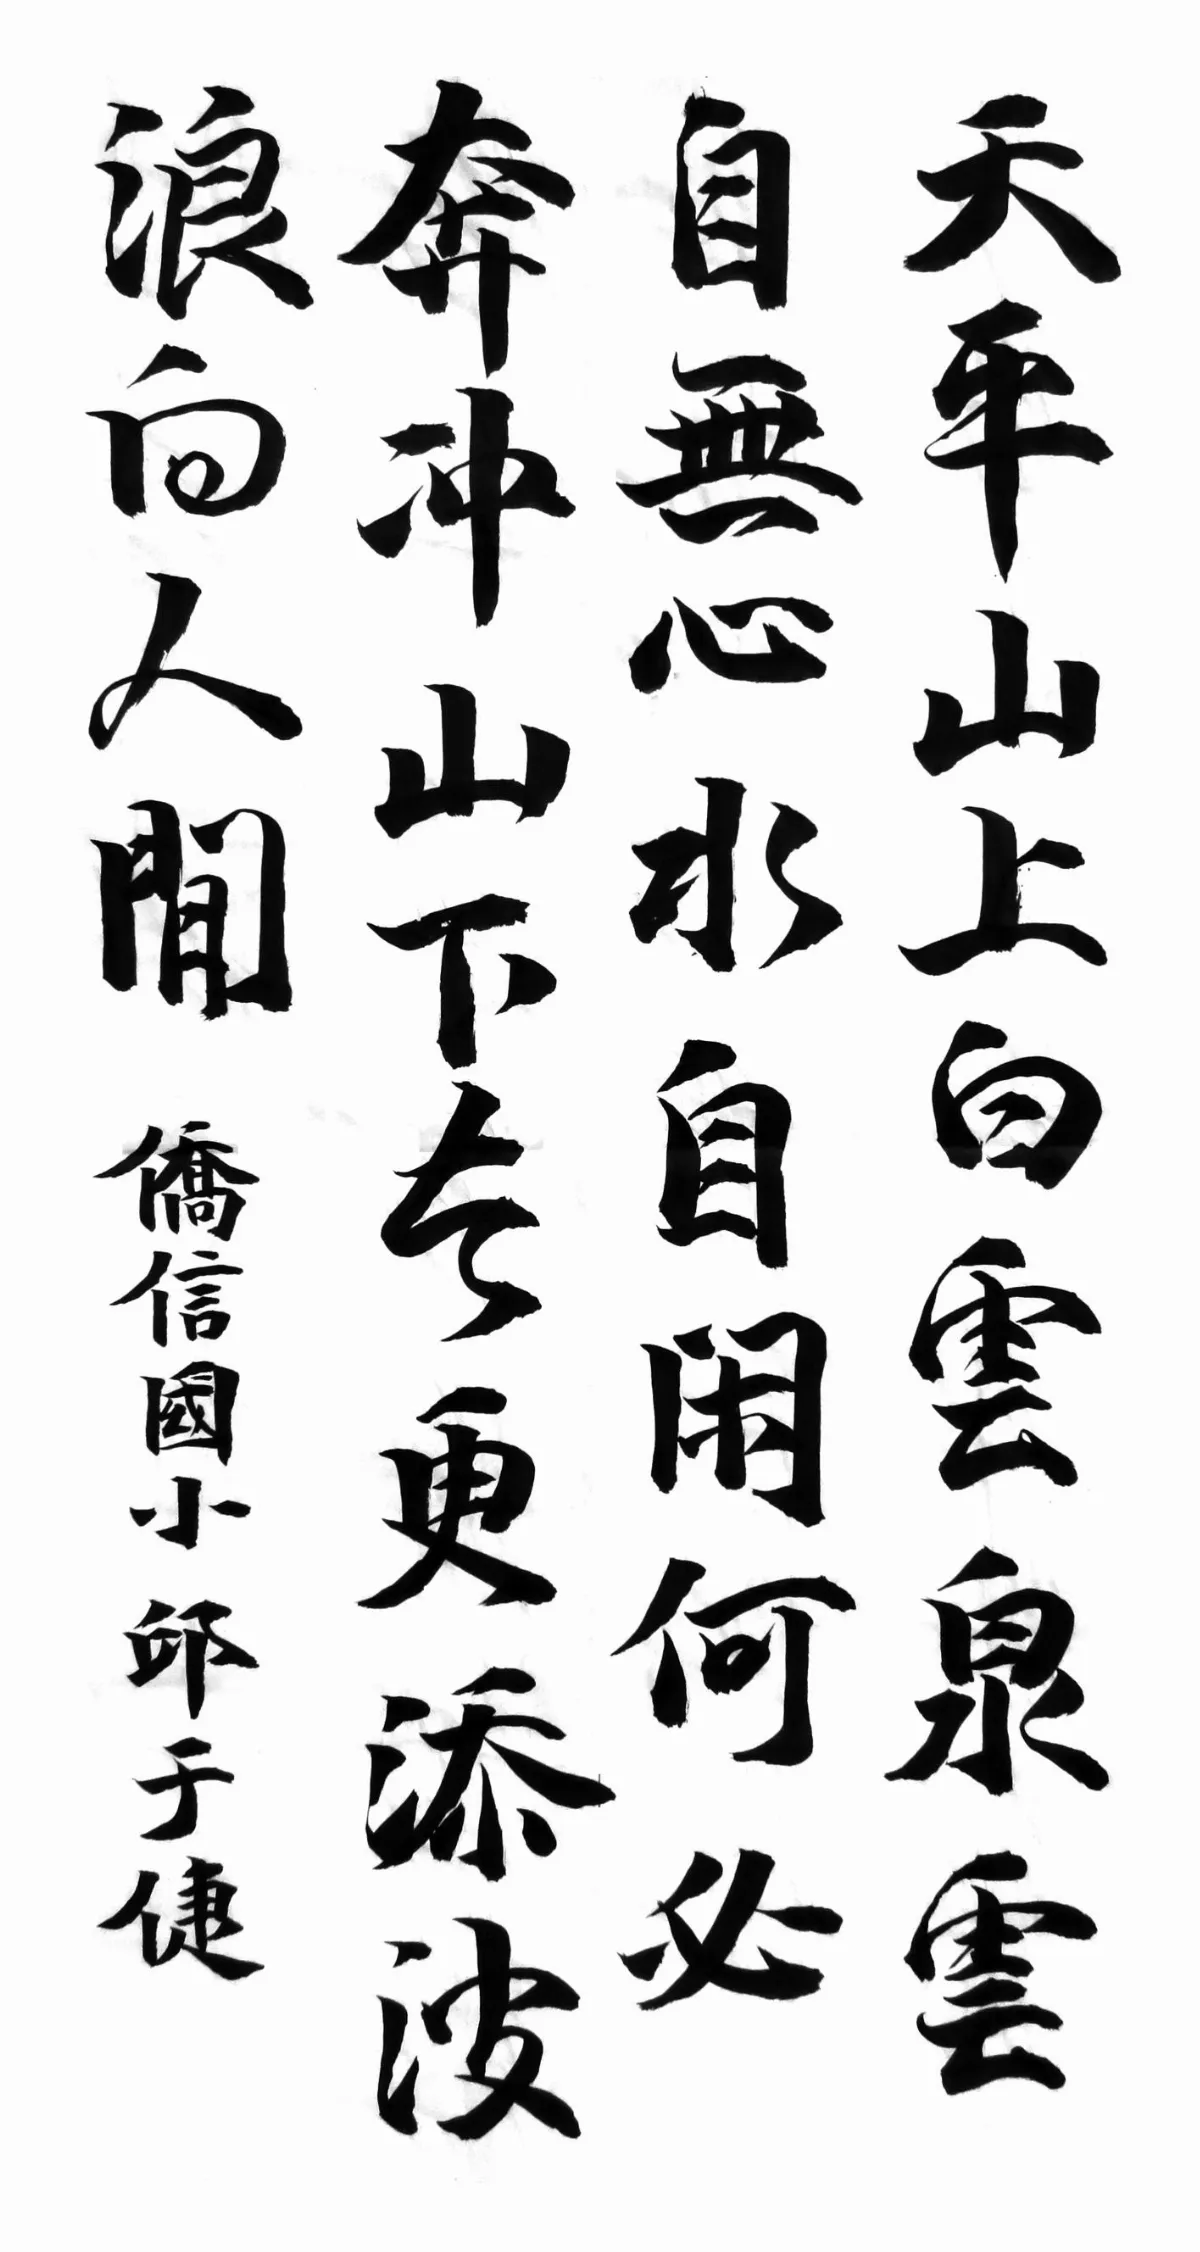 天平山上白雲泉雲
自無心水自閑何必
奔沖山下去更添波
浪向人間 僑信國小 邱于倢